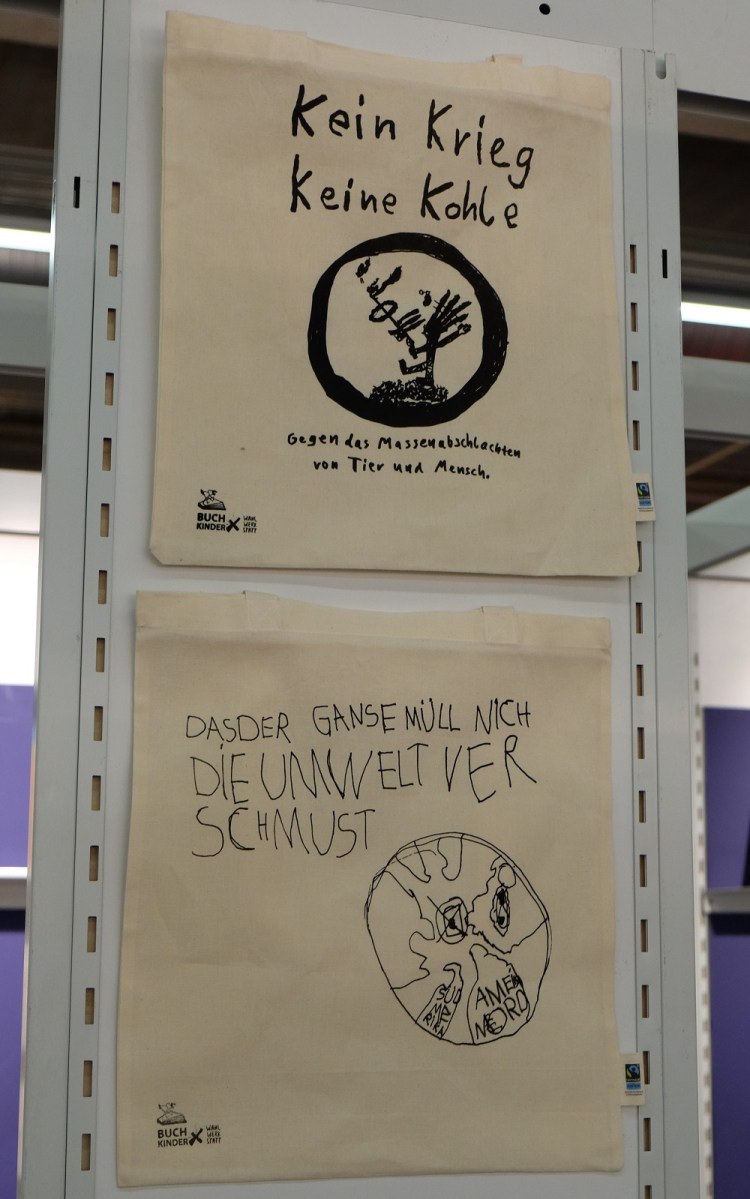 Kein Krieg
Keine Kohle
Gegen das Massenabschlachten
von Tier und Mensch.
BUCH
KINDER X WAHL
WERK
STATT
DASDER GANSE MÜLL NICH
DIE UMWELT VER
SCHMUST
SÜD
AMERIKA
NORD
BUCH
KINDER X WAHL
WERK
STATT